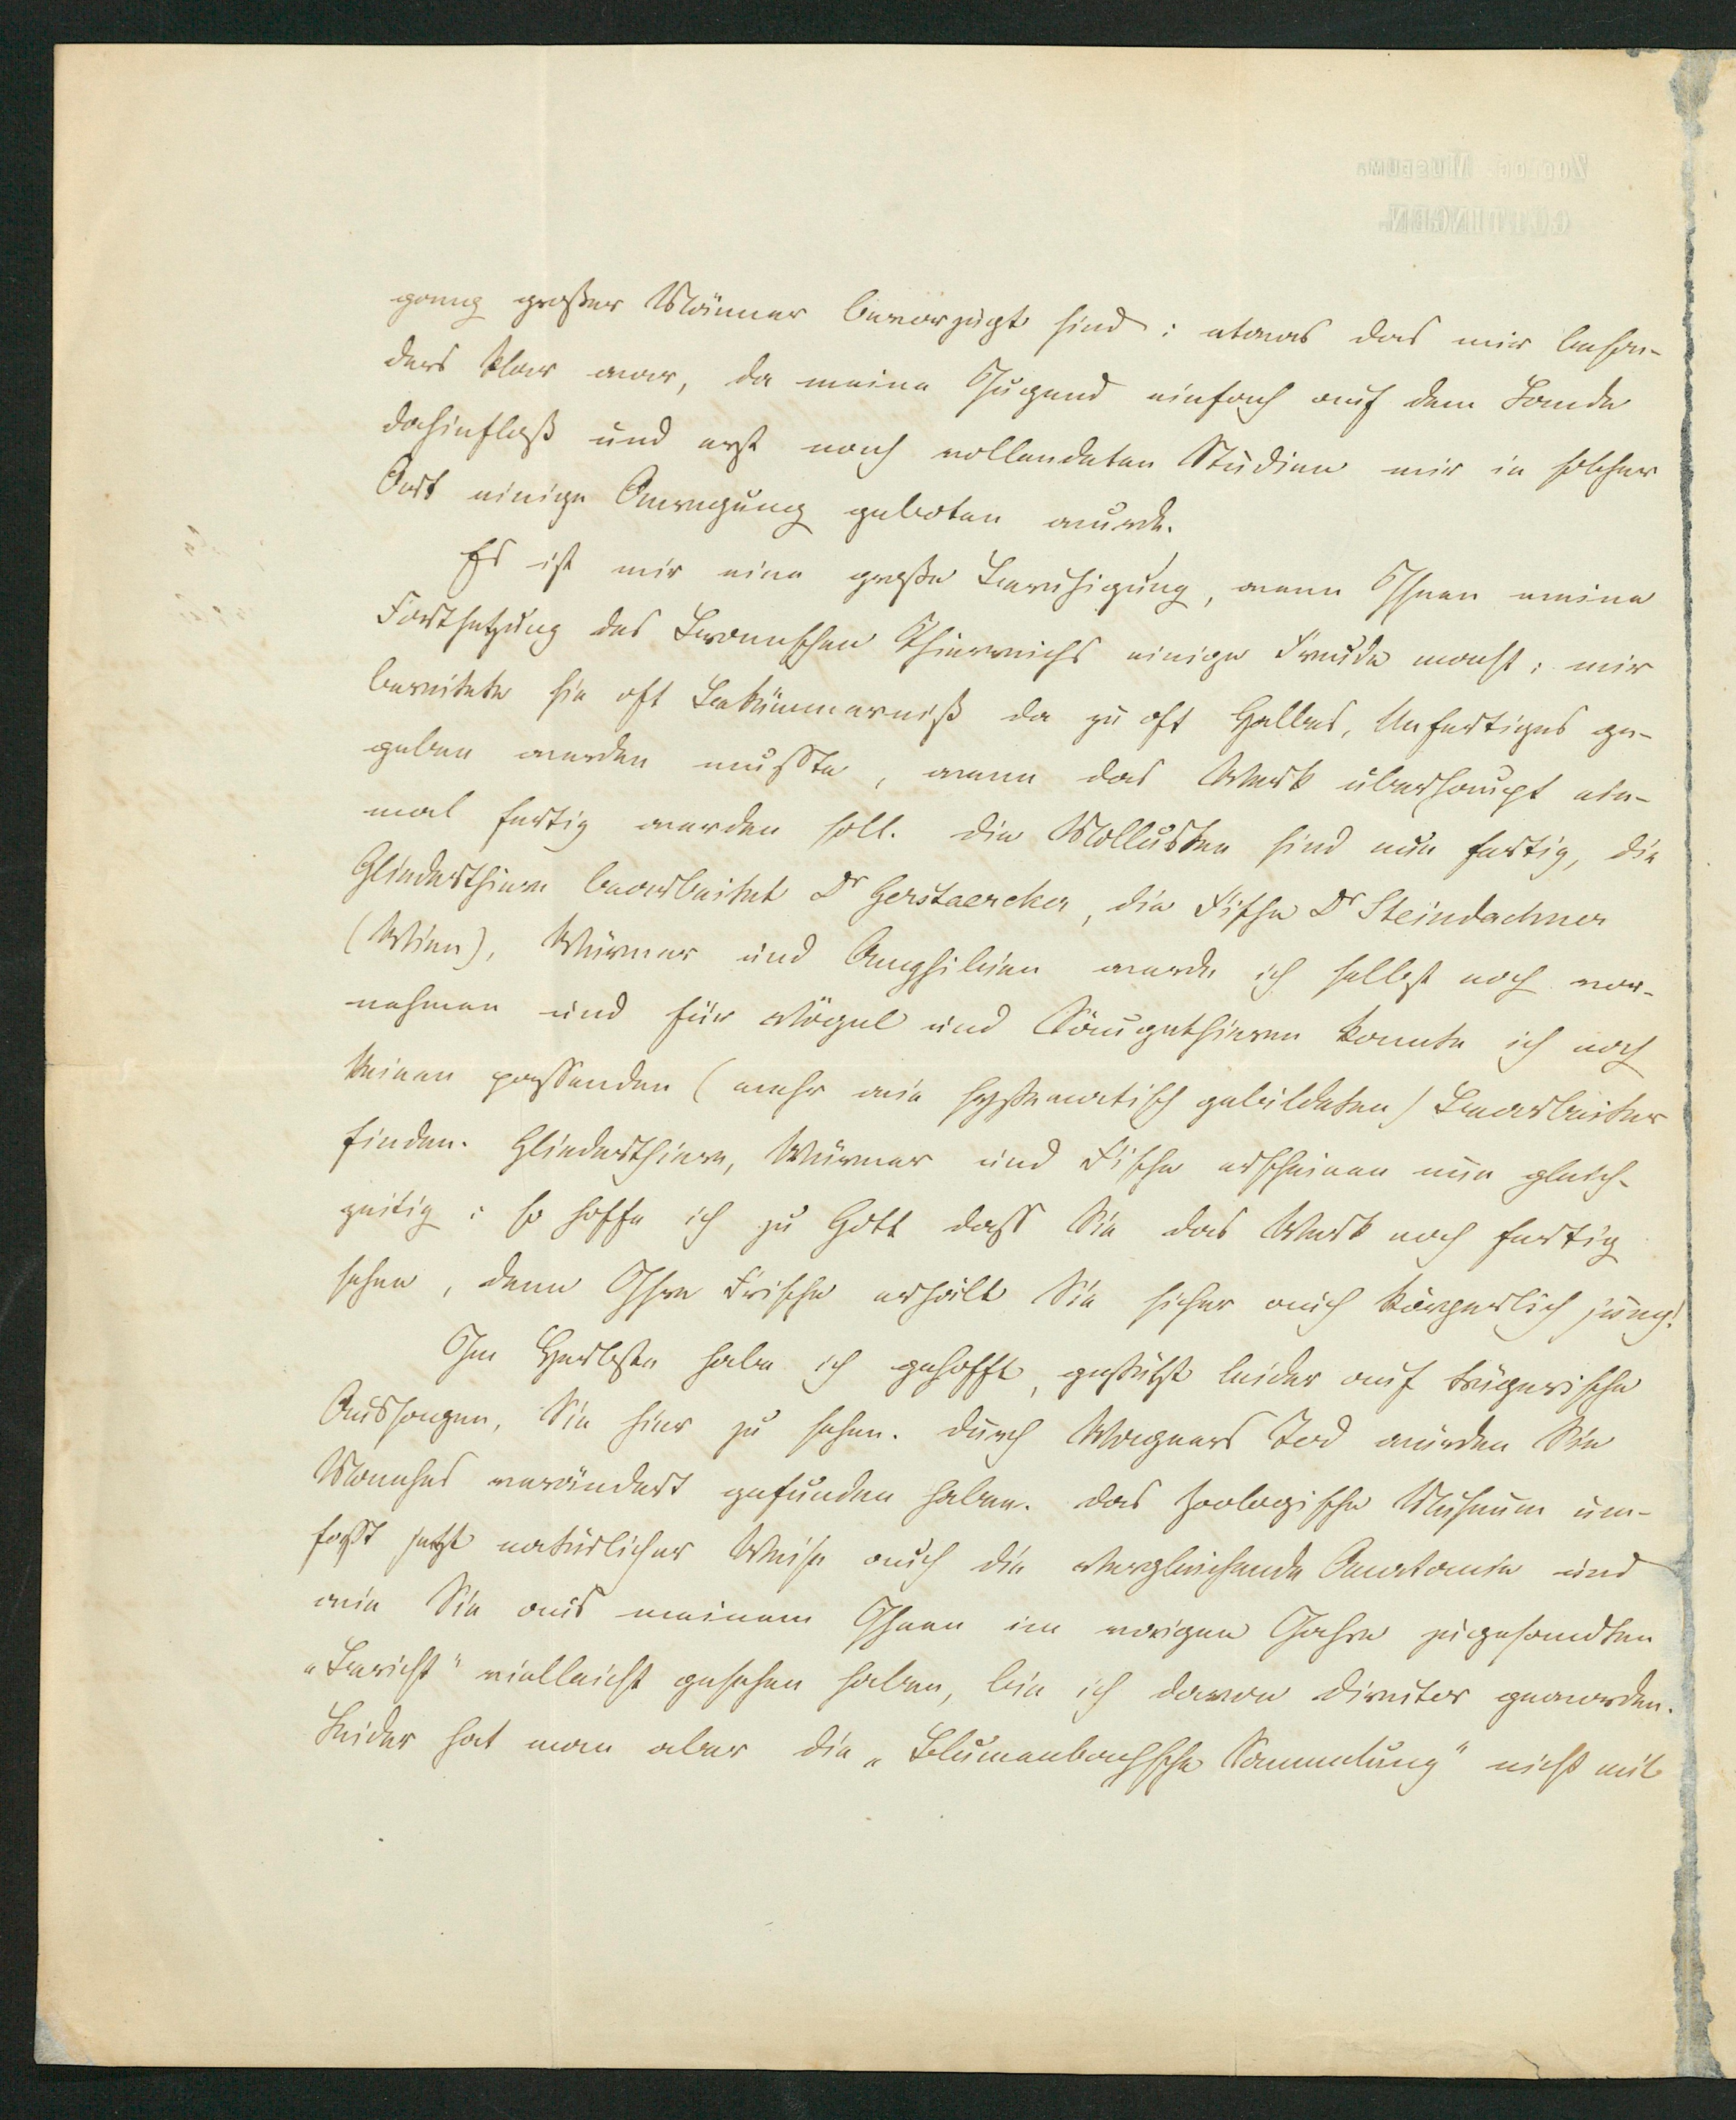 Zoolog. Museum.
GÖTTINGEN.
gang großer Männer bevorzugt sind: etwas das mir beson-
ders klar war, da meine Jugend einfach auf dem Lande
dahinfloß und erst nach vollendeten Studien mir in solcher
Art einige Anregung geboten wurde.
Es ist mir eine große Beruhigung, wenn Ihnen meine
Fortsetzung des Bronnschen Thierreichs einige Freude macht: mir
bereitete sie oft Bekümmerniß da zu oft Halbes, Unfertiges ge-
geben werden mußte, wenn das Werk überhaupt ein-
mal fertig werden soll. Die Mollusken sind nun fertig, die
Gliederthiere bearbeitet Dr Gerstaercker, die Fische Dr Steindachner
(Wien), Würmer und Amphibien werde ich selbst noch vor-
nehmen und für Vögel und Säugethieren konnte ich noch
keinen passenden (mehr wie systematisch gebildeten) Bearbeiter
finden. Gliederthiere, Würmer und Fische erscheinen nun gleich-
zeitig: so hoffe ich zu Gott dass Sie das Werk noch fertig
sehen, denn Ihre Frische erhält Sie sicher auch körperlich jung!
Im Herbste habe ich gehofft, gestützt leider auf trügerische
Aussagen, Sie hier zu sehen. Durch Wagners Tod würden Sie
Manches verändert gefunden haben. Das zoologische Museum um-
faßt jetzt natürlicher Weise auch die vergleichende Anatomie und
wie Sie aus meinem Ihnen im vorigen Jahre zugesandten
„Bericht“ vielleicht gesehen haben, bin ich davon Director geworden.
Leider hat man aber die „Blumenbachsche Sammlung“ nicht mit